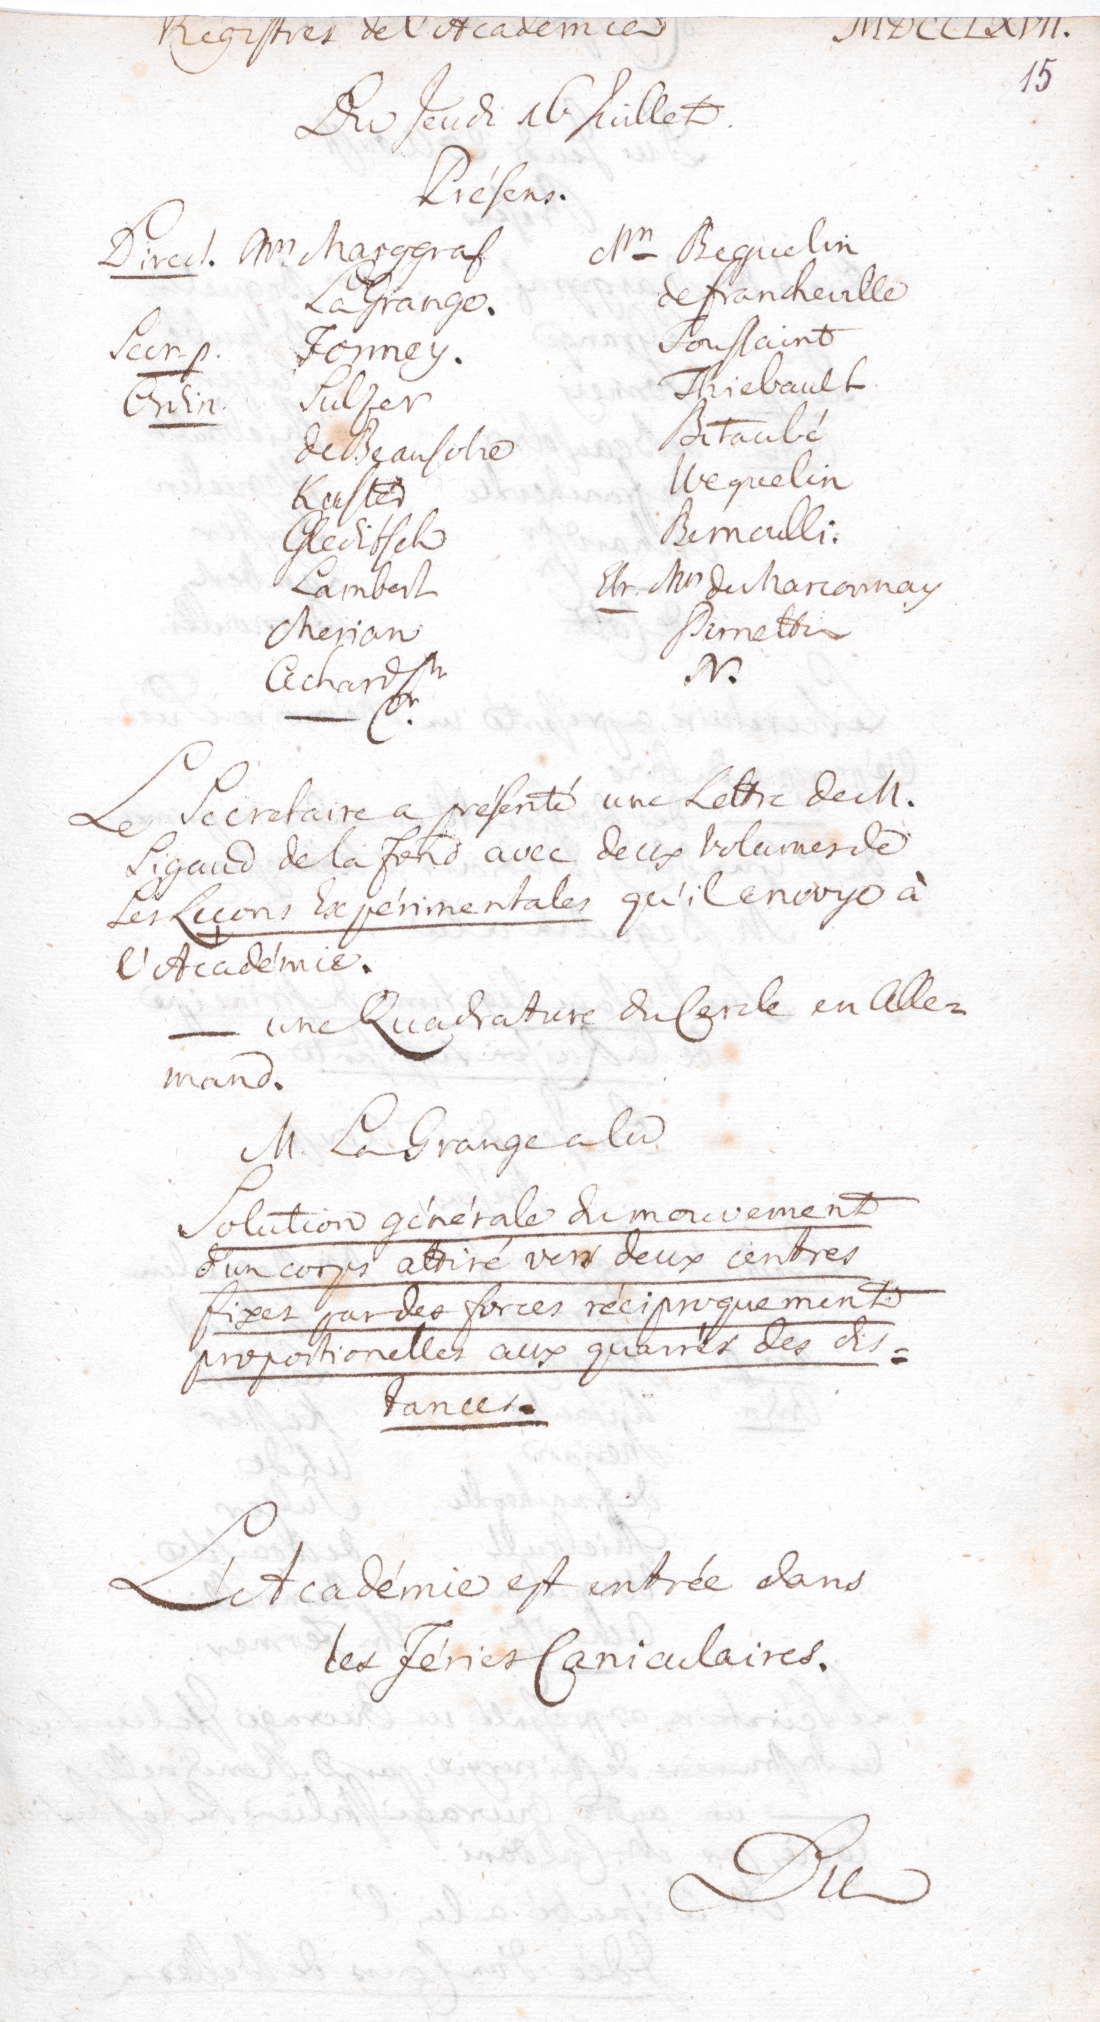 Registres de l'Academie MDCCLXVII.
15
Du Jeudi 16 Juillet.
Présens.
Direct. Mrs Marggraf
La Grange.
Secr. p. Formey.
Ordin. Sulzer
de Beausobre
Kuster
Gleditsch
Lambert
Merian
Achard Sr
— Cr.
Mrs Beguelin
de Francheville
Toussaint
Thiebault
Bitaubé
Weguelin
Bernoulli.
Etr. Mrs de Marconnay
Pernetti
N.
Le Secretaire a présenté une Lettre de M.
Sigaud de la Fond avec deux Volumes de
ses Leçons Expérimentales qu'il envoye à
l'Académie.
— une Quadrature du Cercle en Alle=
mand.
M. La Grange a lu
Solution générale du mouvement
d'un corps attiré vers deux centres
fixes par des forces réciproquement
proportionelles aux quarrés des dis=
tances.
L'Académie est entrée dans
les Féries Caniculaires.
Du